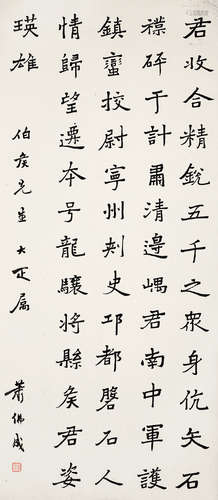 君收合精銳五千之眾身伉矢石
襆砰于計肅清邊嵎君南中軍護
鎮蠻挍尉寧州刾史邛都磬石人
情歸望遷本号龍驤將縣矦君姿
瑛雄
伯矦兄並大疋屬
蕭佛成